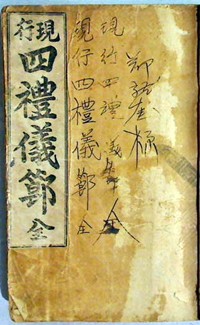 現行四禮儀節全
現行四禮儀節全
現行
四禮儀節全